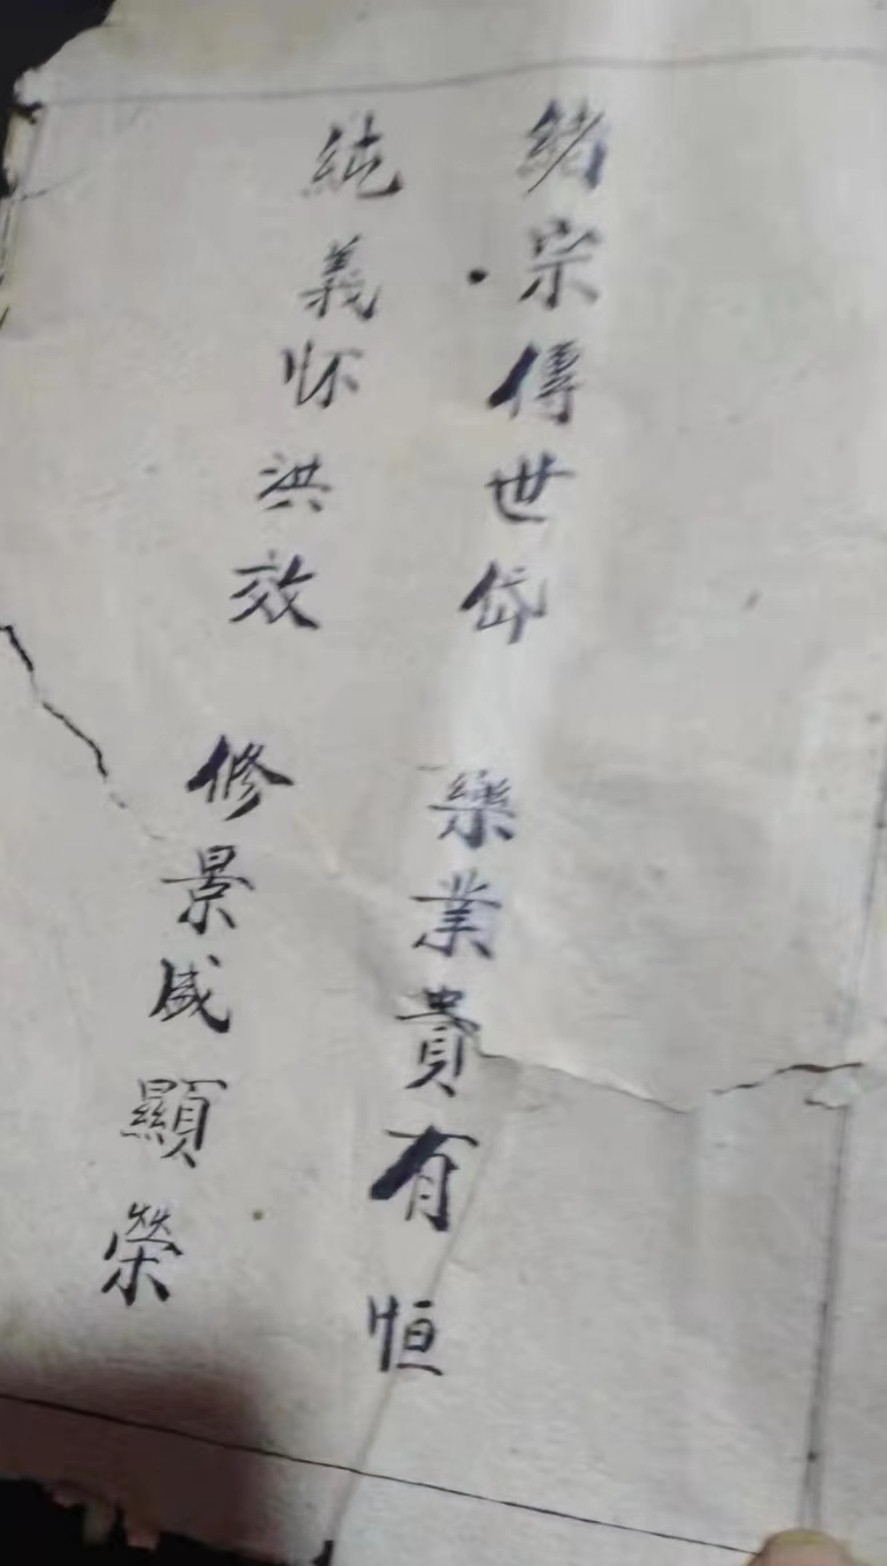 緒宗傳世岱 樂業貴有恒
純義怀洪效 修景顯榮